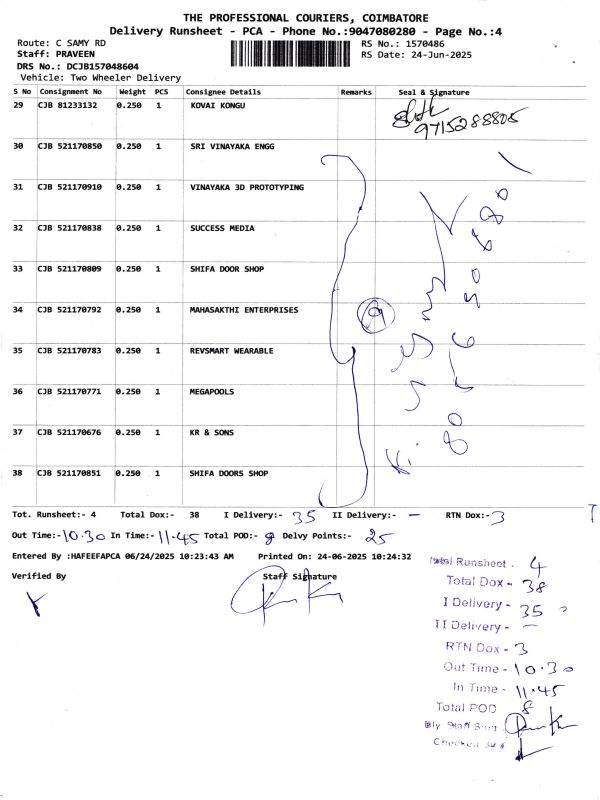 THE PROFESSIONAL COURIERS, COIMBATORE
Delivery Runsheet - PCA - Phone No.:9047080280 - Page No.:4
Route: C SAMY RD RS No.: 1570486
Staff: PRAVEEN RS Date: 24-Jun-2025
DRS No.: DCJB157048604
Vehicle: Two Wheeler Delivery
S No Consignment No Weight PCS Consignee Details Remarks Seal & Signature
29 CJB 81233132 0.250 1 KOVAI KONGU
9715288805
30 CJB 521170850 0.250 1 SRI VINAYAKA ENGG
31 CJB 521170910 0.250 1 VINAYAKA 3D PROTOTYPING
32 CJB 521170838 0.250 1 SUCCESS MEDIA
33 CJB 521170809 0.250 1 SHIFA DOOR SHOP
34 CJB 521170792 0.250 1 MAHASAKTHI ENTERPRISES 9
35 CJB 521170783 0.250 1 REVSMART WEARABLE
36 CJB 521170771 0.250 1 MEGAPOOLS
37 CJB 521170676 0.250 1 KR & SONS
38 CJB 521170851 0.250 1 SHIFA DOORS SHOP
Tot. Runsheet:- 4 Total Dox:- 38 I Delivery:- 35 II Delivery:- — RTN Dox:- 3
Out Time:- 10.30 In Time:- 11.45 Total POD:- 8 Delvy Points:- 25
Entered By :HAFEEFAPCA 06/24/2025 10:23:43 AM Printed On: 24-06-2025 10:24:32
Verified By Staff Signature
Total Runsheet - 4
Total Dox - 38
I Delivery - 35
II Delivery - —
RTN Dox - 3
Out Time - 10.30
In Time - 11.45
Total POD 8
Dly Staff Sign
Checked By